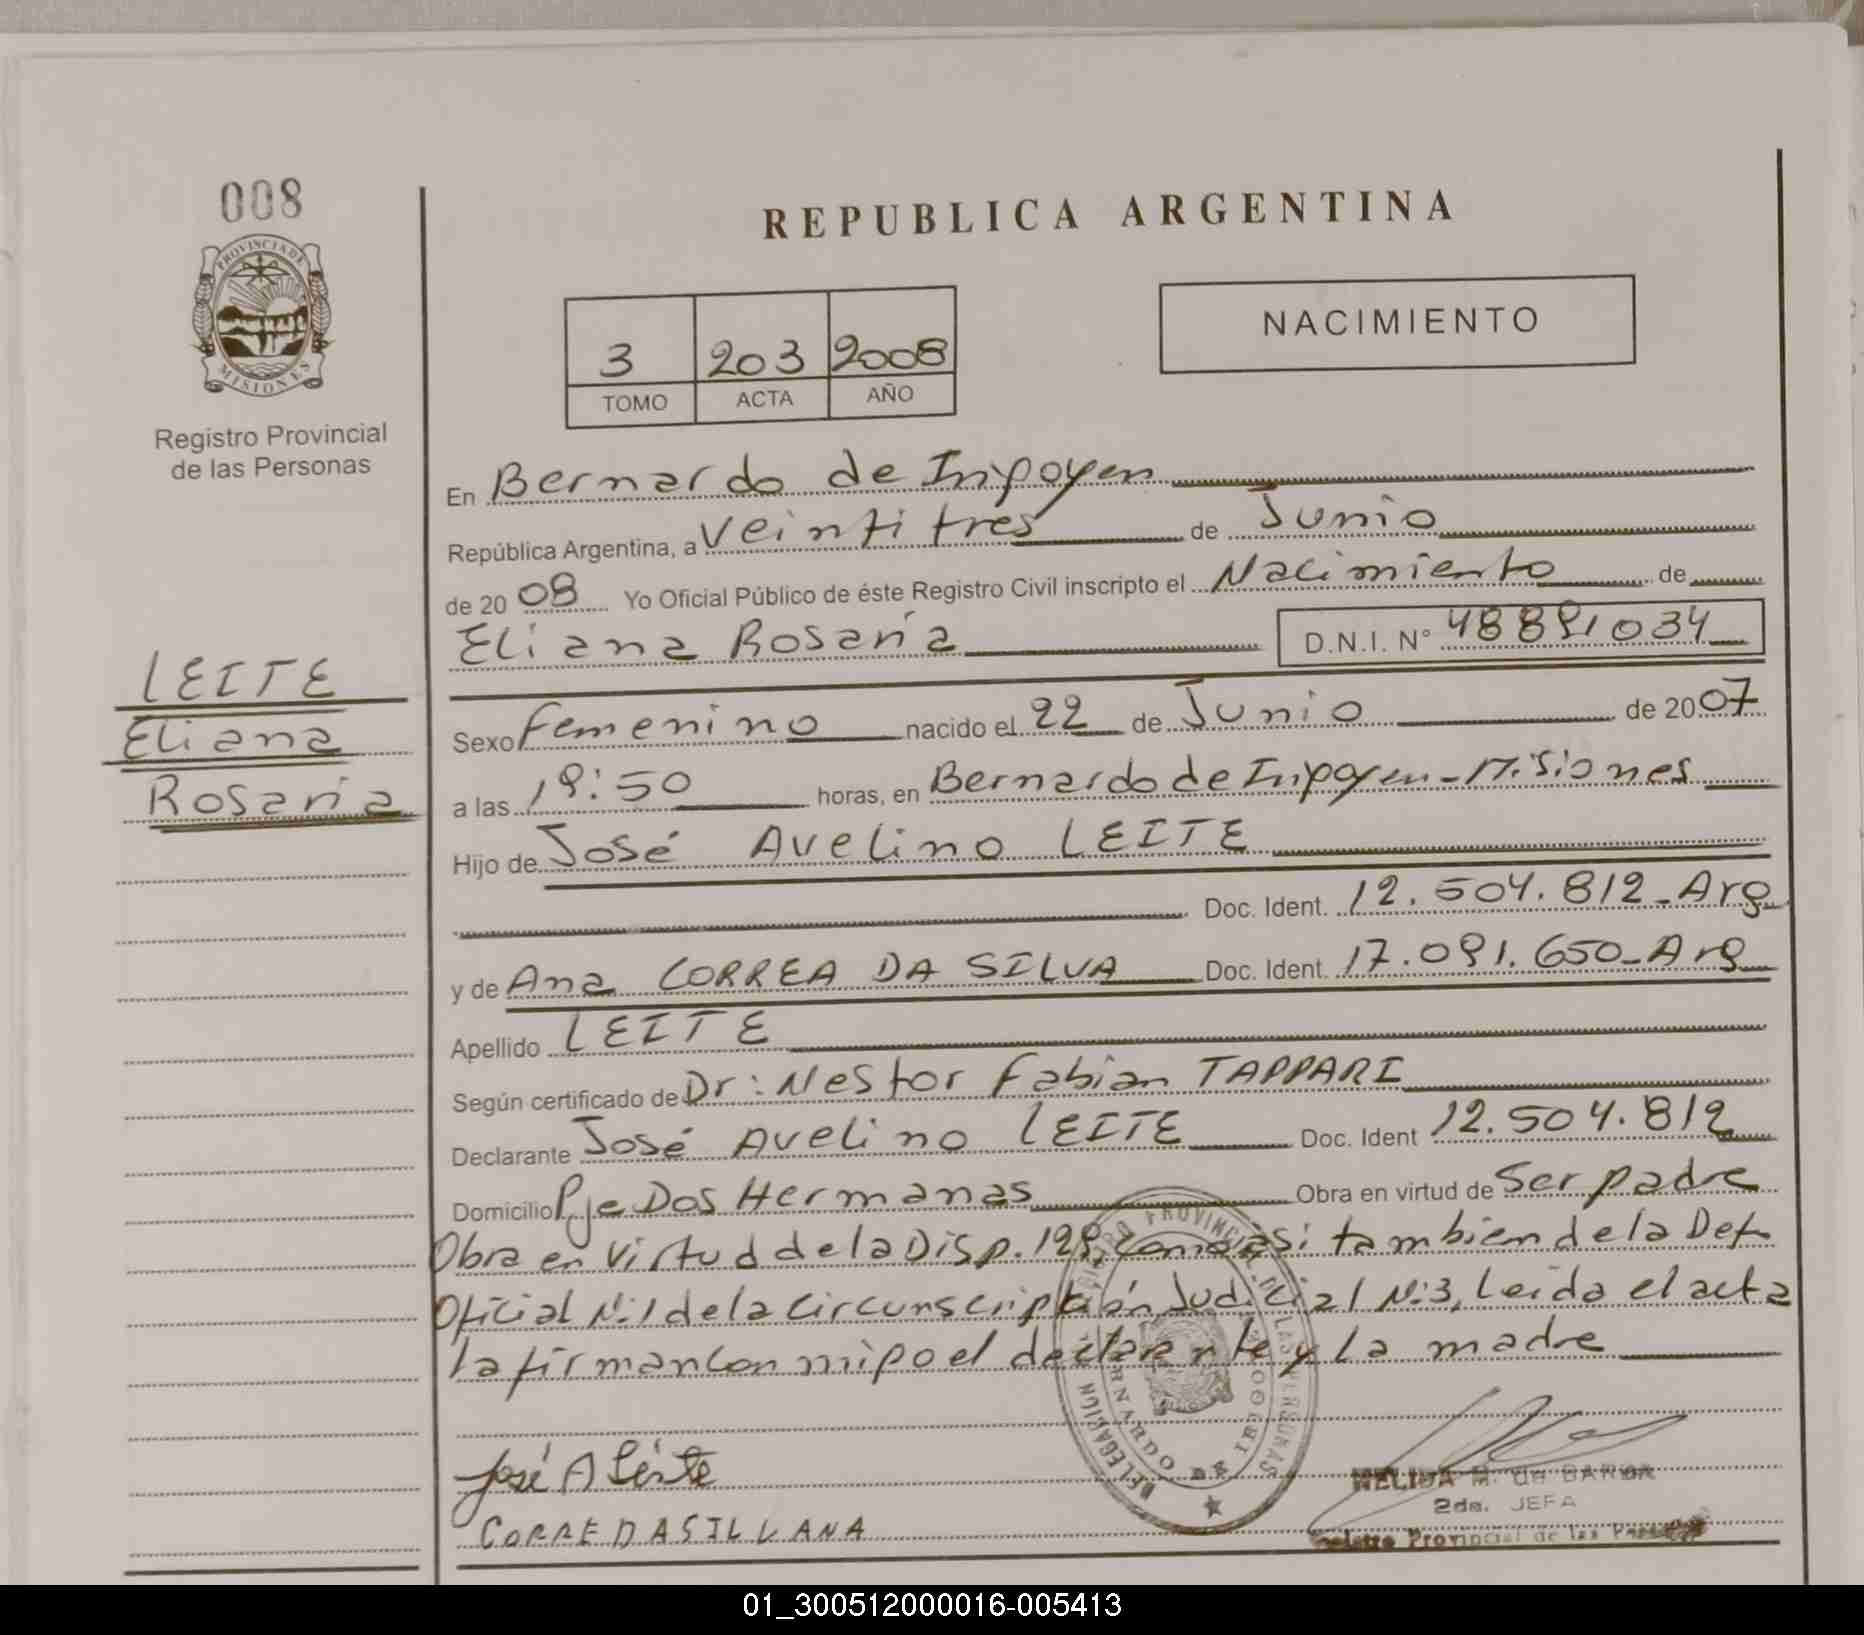 008
PROVINCIA DE
MISIONES
Registro Provincial
de las Personas
LEITE
Eliana
Rosaria
REPUBLICA ARGENTINA
3 203 2008
TOMO ACTA AÑO
NACIMIENTO
En Bernardo de Irigoyen
República Argentina, a Veintitres de Junio
de 2008 Yo Oficial Público de éste Registro Civil inscripto el Nacimiento de
Eliana Rosaria D.N.I. N° 48891034
Sexo Femenino nacido el 22 de Junio de 2007
a las 19:50 horas, en Bernardo de Irigoyen - Misiones
Hijo de José Avelino LEITE
Doc. Ident. 12.504.812 - Arg
y de Ana CORREA DA SILVA Doc. Ident. 17.091.650 - Arg
Apellido LEITE
Según certificado de Dr: Nestor Fabian TAPPARI
Declarante José Avelino LEITE Doc. Ident 12.504.812
Domicilio Pje Dos Hermanas Obra en virtud de Ser padre
Obra en Virtud de la Disp. 129, como asi tambien de la Def
Oficial N:1 de la Circunscripción Judicial N:3, Leida el acta
la firman con mipo el declarante y La madre
José A Leite
CORRE DA SIL VANA
DELEGACION BERNARDO DE IRIGOYEN
NELIDA M. de BARBA
2da. JEFA
Registro Provincial de las Personas
01_300512000016-005413